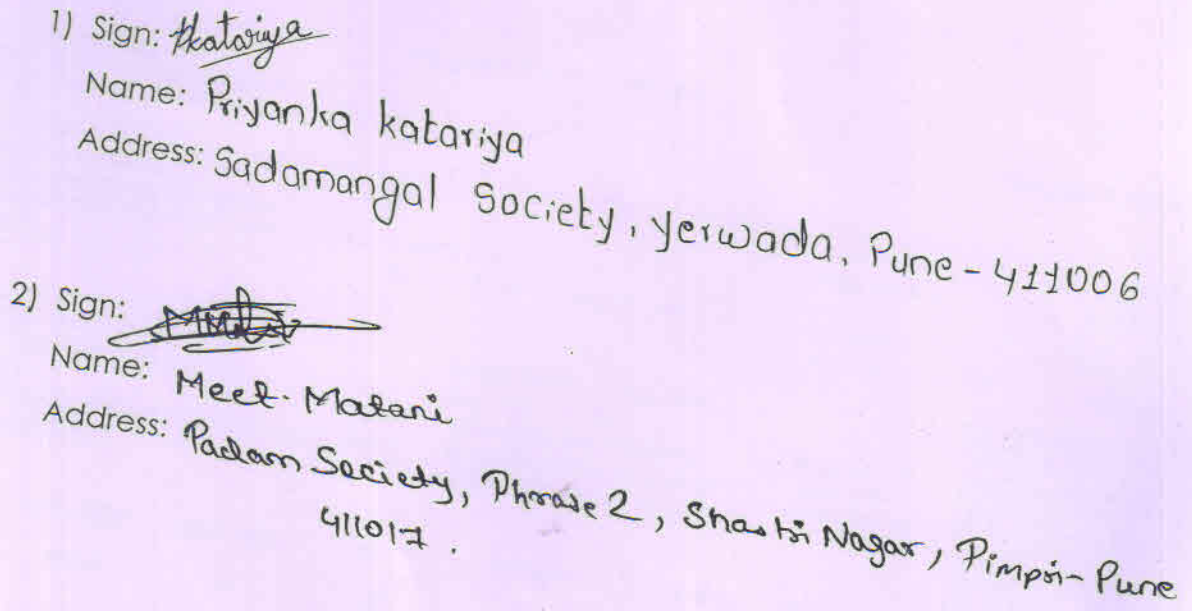 1) Sign: Pkatariya
Name: Priyanka katariya
Address: Sadamangal Society, Yerwada, Pune - 411006
2) Sign:
Name: Meet. Matani
Address: Padam Society, Phrase 2, Shastri Nagar, Pimpri - Pune
411017.